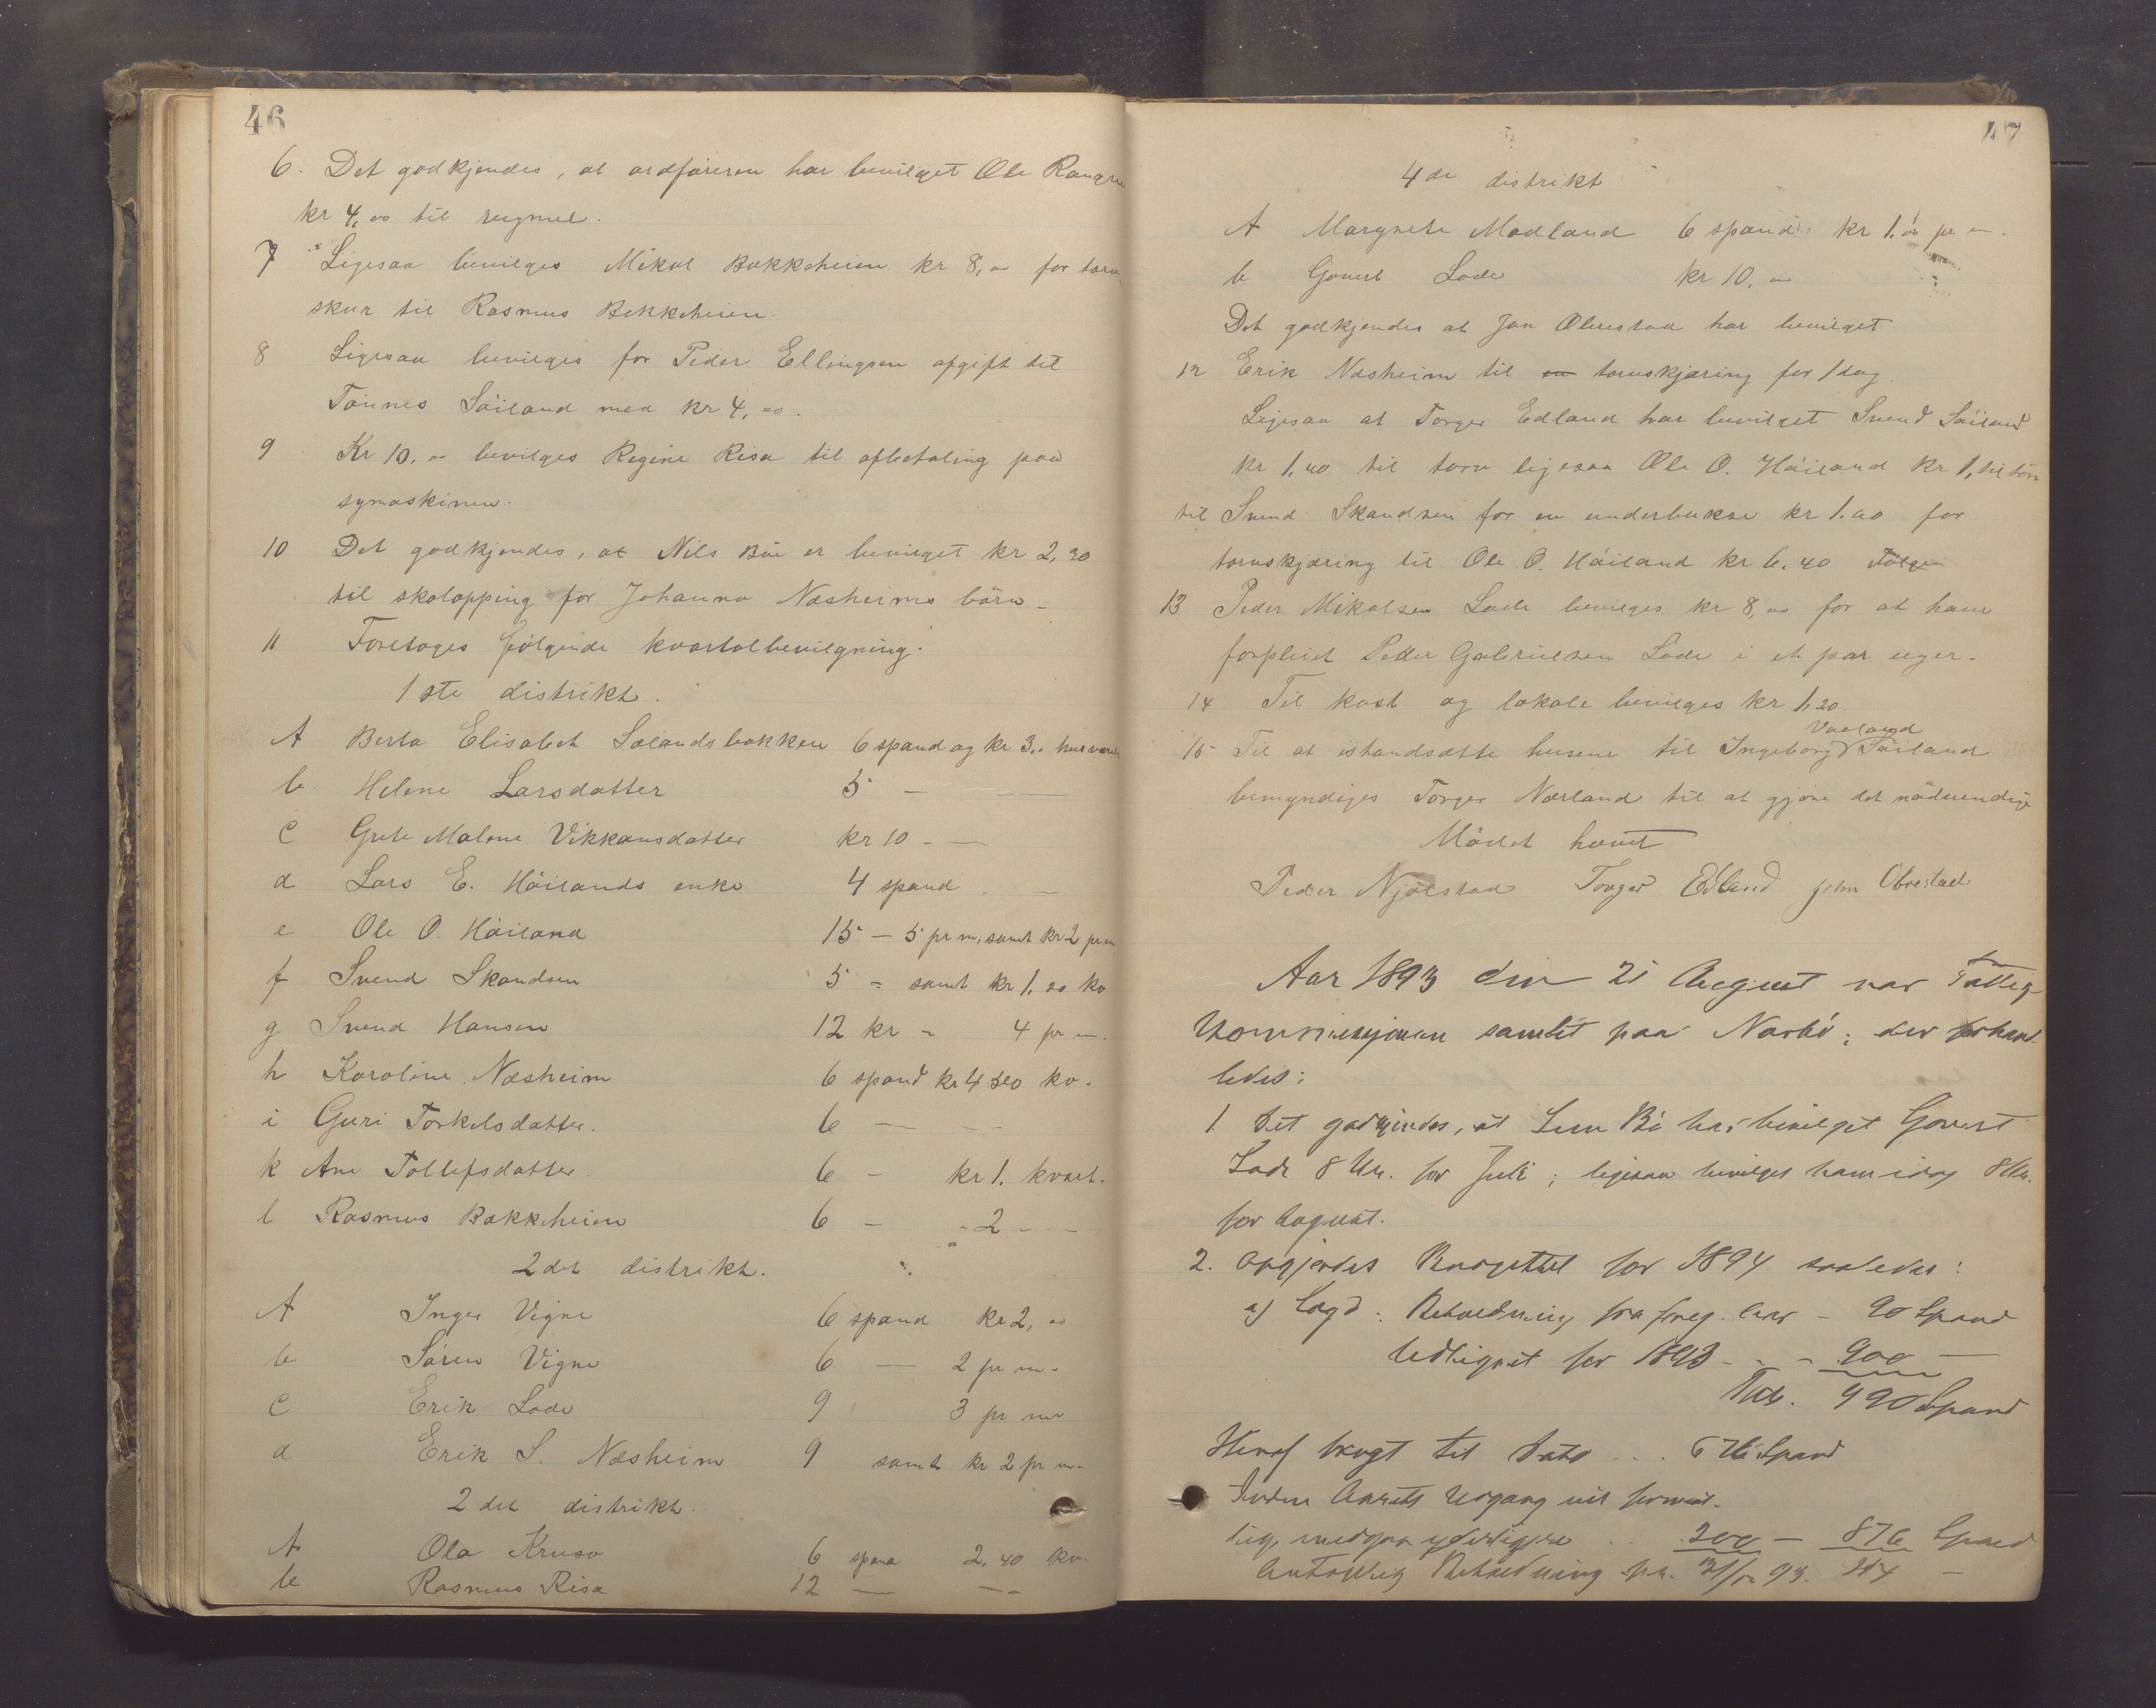 46
6. Det godkjendes, at ordføreren har bevilget Ole
kr 4,00 til rugmel.
7 Ligesaa bevilges Mikal Bakkeheien kr 8,00 for torv
skur til Rasmus Bakkeheien.
8 Ligesaa bevilges for Peder Ellingsen afgift til
Tönnes Söiland med kr 4,00.
9 Kr 10,00 bevilges Regine Risa til afbetaling paa
symaskinen.
10 Det godkjendes, at Nils Bö er bevilget kr 2,30
til skolapping for Johanna Næsheims börn
11 Foretages fölgende kvartalbevilgning.
1ste distrikt.
A Berta Elisabet Sælandsbakken 6 spand og kr 3,00 husvære
b. Helene Larsdatter 5 — —
c Grete Malene Vikkansdatter kr 10 - —
d Lars E. Höilands enke 4 spand —
e Ole O. Höiland 15 — 5 pr m, samt kr 2 pr m
f Svend Skandsen 5 = samt kr 1.20 kv
g Svend Hansen 12 kr = 4 pr m.
h Karoline Næsheim 6 spand kr 4 kv.
i Guri Torkelsdatter. 6 — —
k Ane Tollefsdatter. 6 — kr 1. kvart.
l Rasmus Bakkeheien 6 — - 2 - —
2det distrikt.
A Inger Vigre 6 spand kr 2,00
b Sören Vigre 6 — 2 pr m.
c Erik Lode 9 3 pr m
d Erik S. Næsheim 9 samt kr 2 pr m.
2det distrikt.
A Ola Kruse 6 span 2,40 kv.
b Rasmus Risa 12 — — -
47
4de distrikt
A Margrete Madland 6 spand kr 1.00 pr m.
b Govert Lode kr 10,00
Det godkjendes at Jon Obrestad har bevilget
12 Erik Næsheim til torvskjæring for 1 dag.
Ligesaa at Torger Edland har bevilget Svend Söiland
kr 1,40 til torv ligesaa Ole O. Höiland kr 1, til
til Svend Skandsen for en underbukse kr 1.00 for
torvskjæring til Ole O. Höiland kr 6.40
13 Peder Mikalsen Lode bevilges kr 8,00 for at have
forpleiet Peder Gabrielsen Lode i et par uger.
14 Til kost og lokale bevilges kr 1,20.
Varland
15 Til at istandsætte husene til Ingeborg Söiland
bemyndiges Torger Nærland til at gjöre det nödvendige
Mödet hævet
Peder Njölstad Torger Edland John Obrestad
Aar 1893 den 21 August var Fattig-
kommissjonen samlet paa Narbö; der forhand-
ledes:
1. Det godkjendes, at Bö har bevilget Govert
Lode 8 Kr. for Juli; ligesaa bevilges ham idag 8 Kr.
for August.
2. Opgjordes Budgettet for 1894 saaledes:
a) Lagd: Beholdning fra foreg. Aar — 90 Spand
Udlignet for 1893 - - - 900 —
Tils. 990 Spand
Heraf brugt til Dato . . . 676 Spand
Inden Aarets Udgang vil forment-
lig medgaa yderligere . . 200 — 876 Spand
Antagelig Beholdning pr. 31/12 93. 114 —